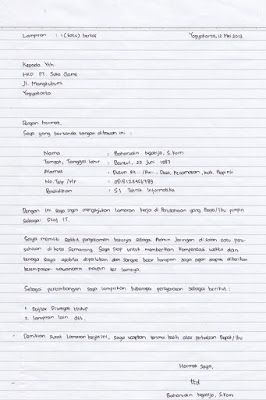 Lampiran : 1 (satu) berkas Yogyakarta, 12 Mei 2013
Kepada Yth
HRD PT. Suka Game
Jl. Mangkubumi
Yogyakarta
Dengan hormat,
Saya yang bertanda tangan dibawah ini :
Nama : Baharudin S.Kom
Tempat, Tanggal Lahir : Bantul, 23 Juni 1987
Alamat : Dusun Rt. /Rw. , Desa, Kecamatan, Kab.
No. Telp / Hp :
Pendidikan : S1 Teknik Informatika
Dengan ini saya ingin mengajukan lamaran kerja di Perusahaan yang Bapak/Ibu pimpin
sebagai Staf IT.
Saya memiliki sedikit pengalaman bekerja sebagai Admin Jaringan di salah satu peru-
sahaan di kota Semarang. Saya siap untuk memberikan kompensasi waktu dan
tenaga saya apabila diperlukan dan sangat besar harapan saya agar segera diberikan
kesempatan wawancara maupun tes lainnya.
Sebagai pertimbangan saya lampirkan beberapa persyaratan sebagai berikut :
1. Daftar Riwayat Hidup
2. Lampiran lain dll.
Demikian Surat Lamaran kerja ini, saya ucapkan terima kasih atas perhatian Bapak/Ibu
Hormat Saya,
ttd
Baharudin S.Kom